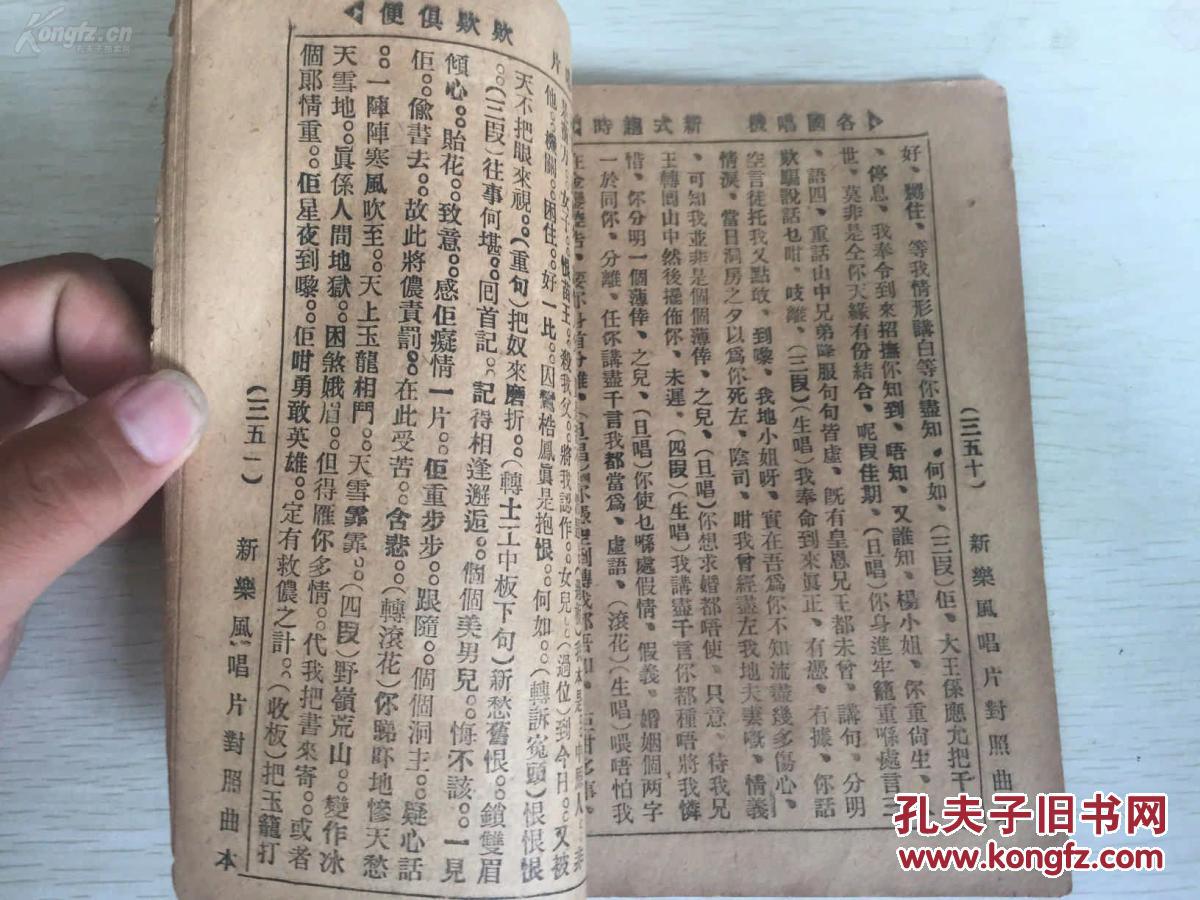 新樂風唱片對照曲
(三五十)
好、綁住、等我情形講白等你盡知、何如、(三段)佢、大王係應尤把干
、停息、我奉令到來招撫你知到、唔知、又誰知、楊小姐、你重尙生、
世、莫非是仝你天緣有份結合、呢段佳期、(旦唱)你身進牢籠重喺處言三
、語四、重話山中兄弟降服句句皆虛、旣有皇恩兄王都未曾、講句、分明
欺騙說話乜咁、吱離、(三段)(生唱)我奉命到來眞正、有憑、有據、你話
空言徒托我又點敢、到嚟、我地小姐呀、實在吾爲你不知流盡幾多傷心、
情淚、當日洞房之夕以爲你死左、陰司、咁我曾經盡左我地夫妻嘅、情義
、可知我並非是個個薄倖、之兒、(旦唱)你想求婚都唔使、只意、待我兄
王轉回山中然後擺佈你、未遲、(四段)(生唱)我講盡千言你都種唔將我憐
惜、你分明一個薄倖、之兒、(旦唱)你使乜喺處假情、假義、婚姻個两字
一於同你、分離、任你講盡千言我都當爲、虛語、(滾花)(生唱)喂唔怕我
各國唱機 新式趨時
欵欵俱便
片
他。機關。。困住。。好一比。。囚鸞梏鳳眞是抱恨。。何如。。(轉訴寃頭)恨恨恨
天不把眼來視。。(重句)把奴來磨折。。(轉士工中板下句)新愁舊恨。。鎖雙眉
。。(三段)往事何堪。。回首記。。記得相逢邂逅。。個個美男兒。。悔不該。。一見
傾心。。貽花。。致意。。感佢癡情一片。。佢重步步。。跟隨。。個個洞主。。疑心話
佢。。偸書去。。故此將儂責罰。。在此受苦。。含悲。。(轉滾花)你睇吓地慘天愁
。。一陣陣寒風吹至。。天上玉龍相鬥。。天雪霏霏。。(四段)野嶺荒山。。變作冰
天雪地。。眞係人間地獄。。困煞娥眉。。但得雁你多情。。代我把書來寄。。或者
個郞情重。。佢星夜到嚟。。佢咁勇敢英雄。。定有救儂之計。。(收板)把玉籠打
(三五一)
新樂風唱片對照曲本
Kongfz.cn
孔夫子旧书网
孔夫子旧书网
www.kongfz.com